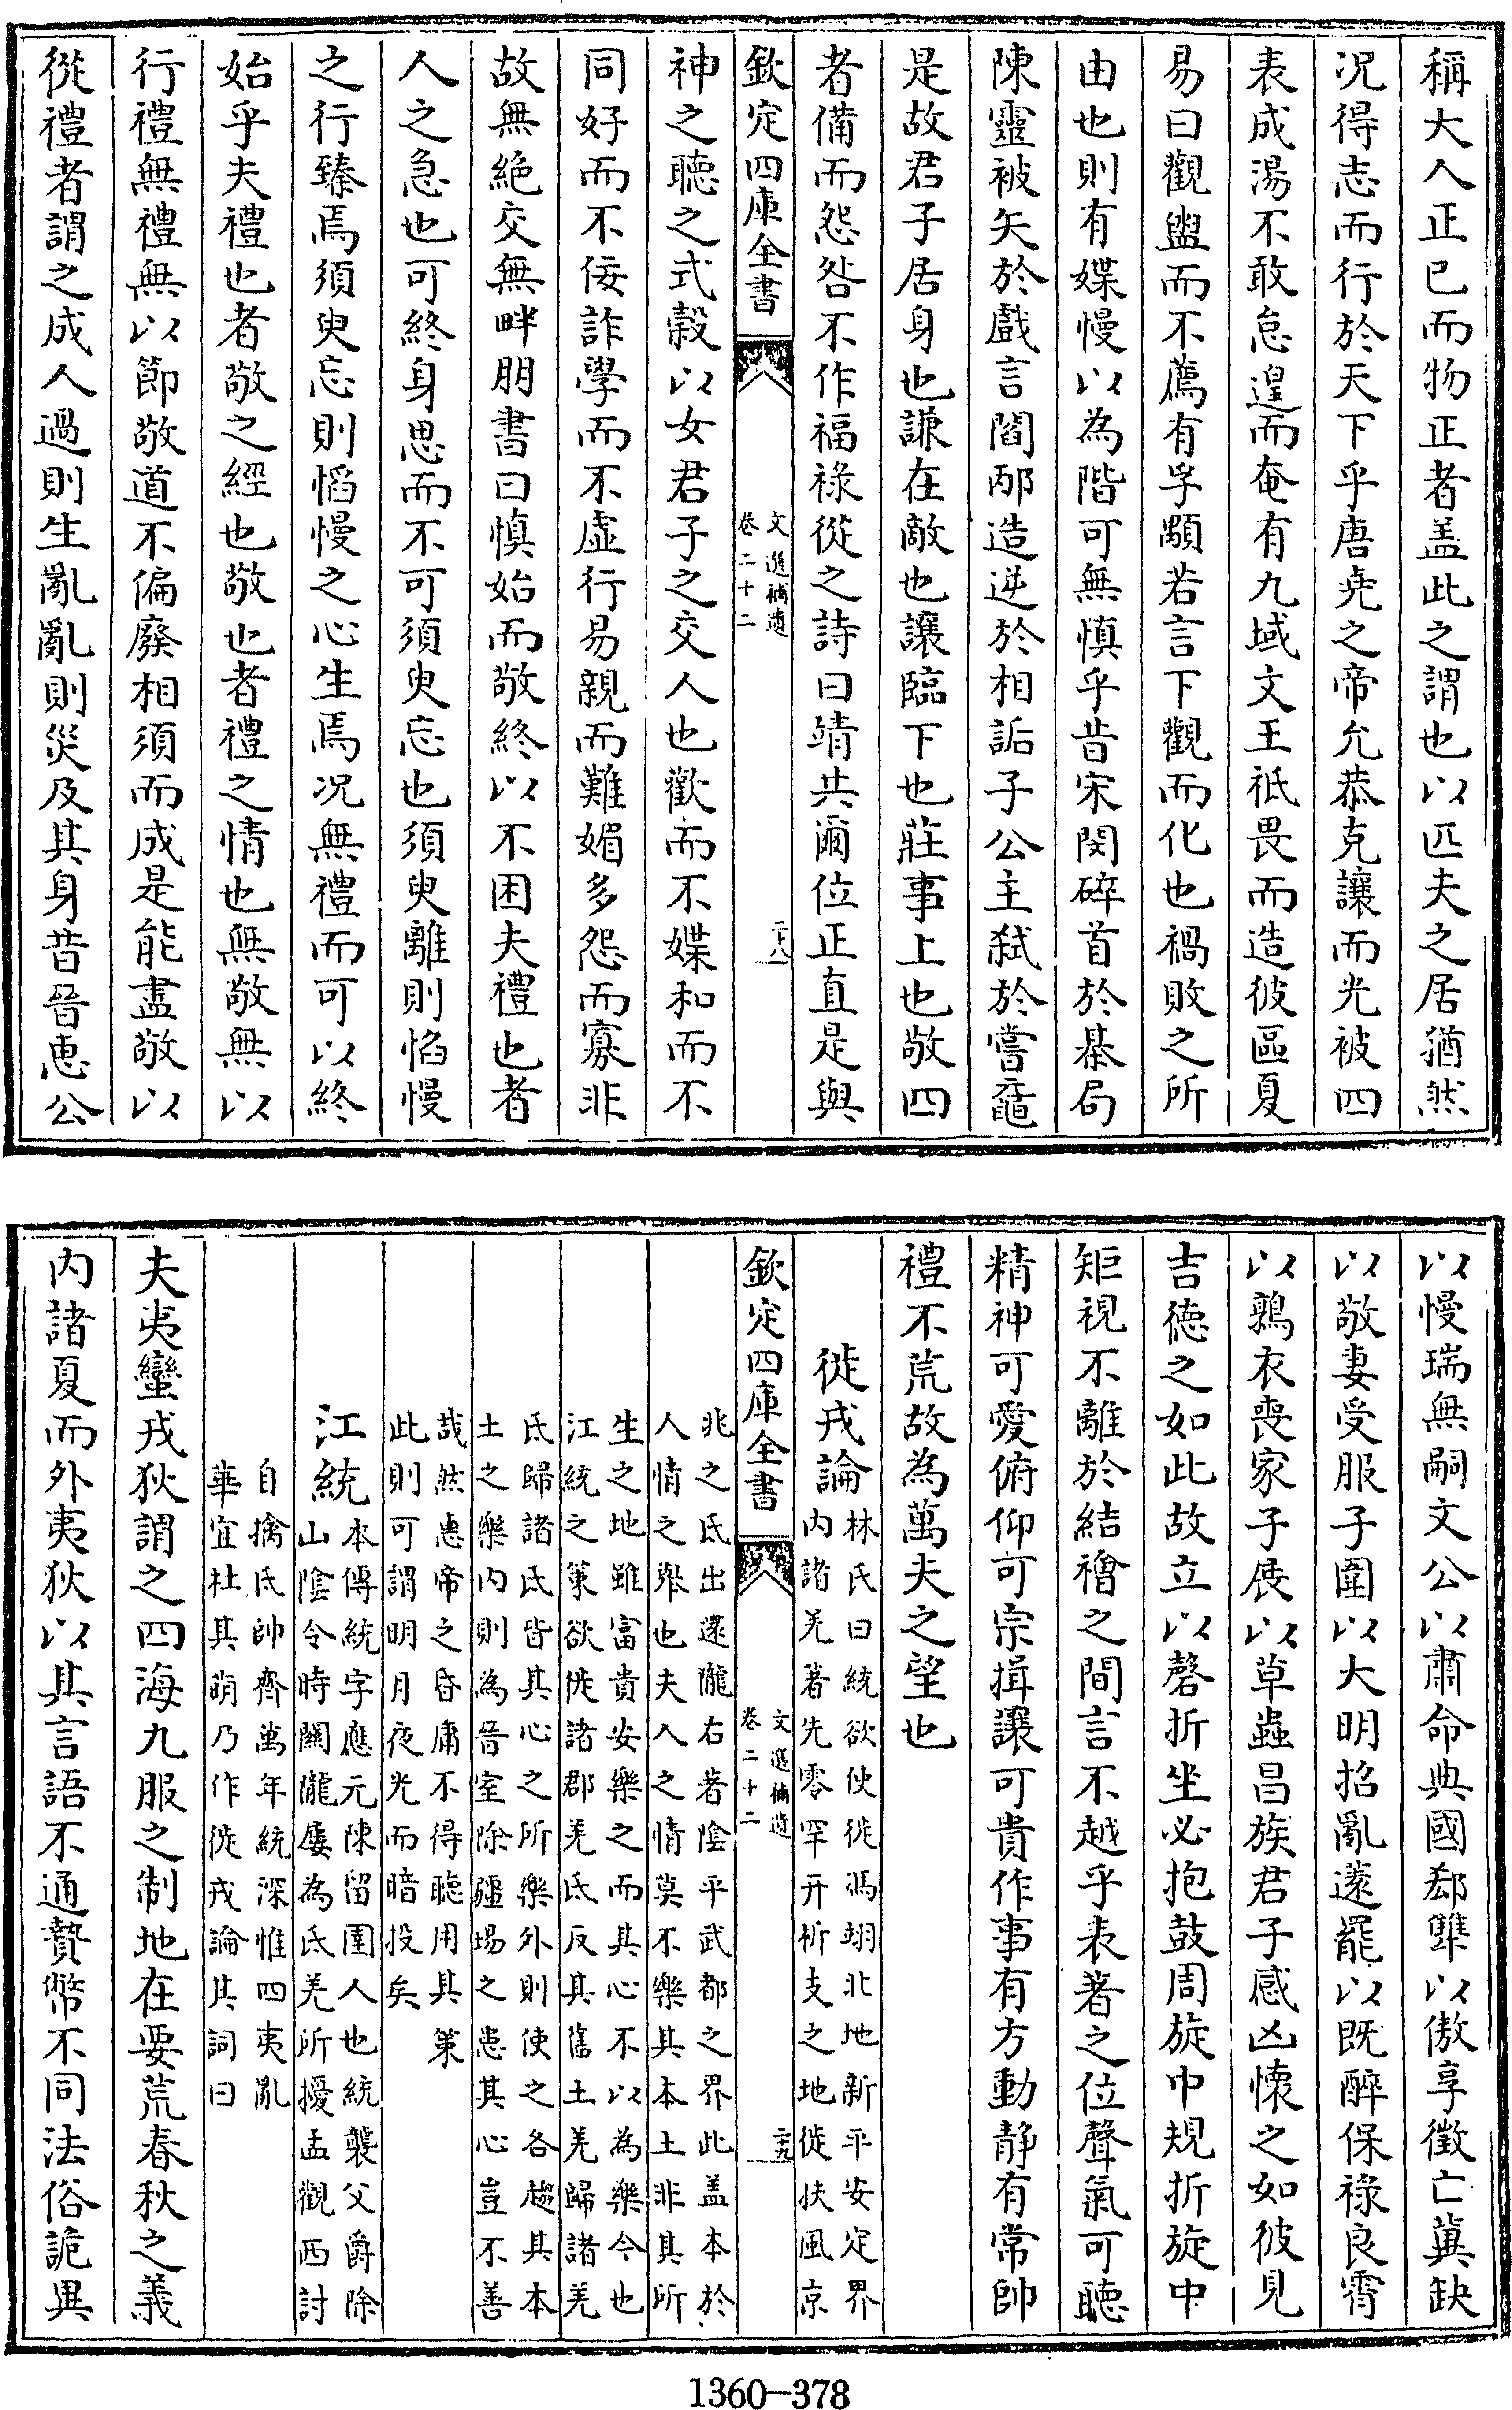 稱大人正已而物正者盖此之謂也以匹夫之居猶然
况得志而行於天下乎唐堯之帝允恭克讓而光被四
表成湯不敢怠遑而奄有九域文王祇畏而造彼區夏
易曰觀盥而不薦有孚顒若言下觀而化也禍敗之所
由也則有媟慢以為階可無慎乎昔宋閔碎首於棊局
陳靈被矢於戲言閻邴造逆於相詬子公主弑於嘗黿
是故君子居身也謙在敵也讓臨下也莊事上也敬四
者備而怨咎不作福祿從之詩曰靖共爾位正直是與
欽定四庫全書
文選補遺
卷二十二
二十八
神之聽之式穀以女君子之交人也歡而不媟和而不
同好而不佞詐學而不虛行易親而難媚多怨而寡非
故無絶交無畔朋書曰慎始而敬終以不困夫禮也者
人之急也可終身思而不可須臾忘也須臾離則慆慢
之行臻焉須臾忘則慆慢之心生焉况無禮而可以終
始乎夫禮也者敬之經也敬也者禮之情也無敬無以
行禮無禮無以節敬道不偏廢相須而成是能盡敬以
從禮者謂之成人過則生亂亂則災及其身昔晉惠公
以慢瑞無嗣文公以肅命典國郄犨以傲享徵亡冀缺
以敬妻受服子圍以大明招亂薳罷以既醉保祿良霄
以鶉衣喪家子展以草蟲昌族君子感凶懐之如彼見
吉徳之如此故立以磬折坐必抱鼓周旋中規折旋中
矩視不離於結襘之間言不越乎表著之位聲氣可聽
精神可愛俯仰可宗揖讓可貴作事有方動静有常帥
禮不荒故為萬夫之望也
徙戎論
林氏曰統欲使徙馮翊北地新平安定界
内諸羌著先零罕开析支之地徙扶風京
欽定四庫全書
文選補遺
卷二十二
二十九
兆之氐出還隴右著隂平武都之界此盖本於
人情之舉也夫人之情莫不樂其本土非其所
生之地雖富貴安樂之而其心不以為樂今也
江統之策欲徙諸郡羌氐反其舊土羌歸諸羌
氐歸諸氐皆其心之所樂外則使之各趨其本
土之樂内則為晉室除疆埸之患其心豈不善
哉然惠帝之昏庸不得聽用其策
此則可謂明月夜光而暗投矣
江統
本傳統字應元陳留圉人也統襲父爵除
山隂令時關隴屢為氐羌所擾孟觀西討
自擒氐帥齊萬年統深惟四夷亂
華宜杜其萌乃作徙戎論其詞曰
夫夷蠻戎狄謂之四海九服之制地在要荒春秋之義
内諸夏而外夷狄以其言語不通贄幣不同法俗詭異
1360—378